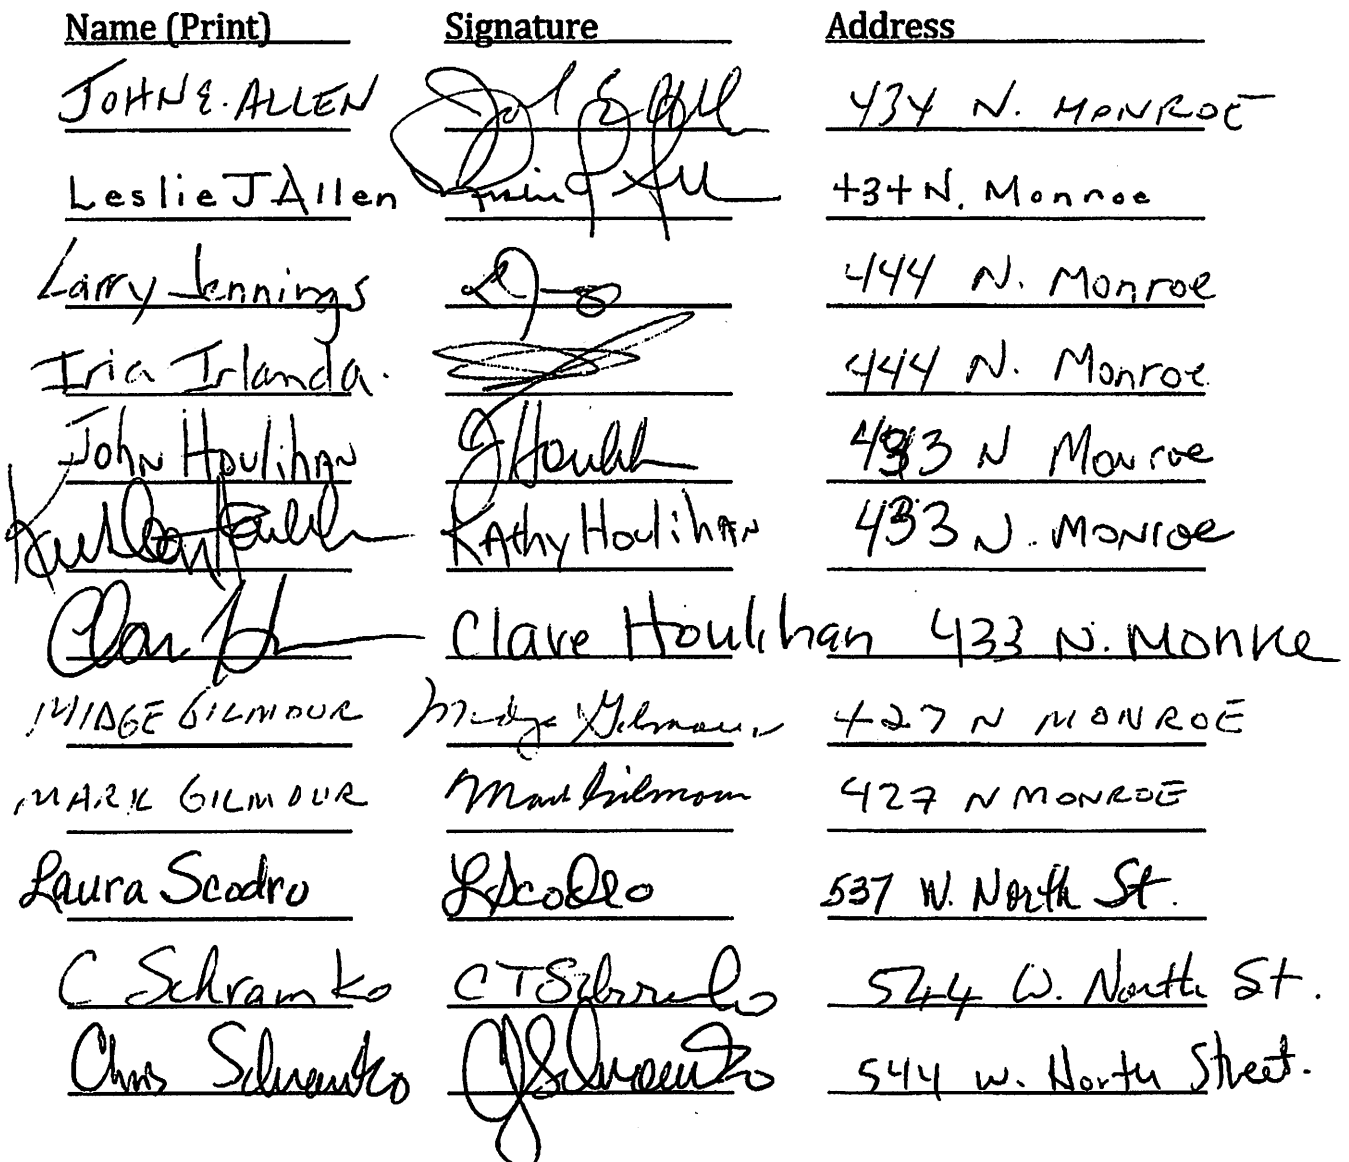 Name (Print) Signature Address
JOHN E. ALLEN John E Allen 434 N. MONROE
Leslie J Allen Leslie J Allen 434 N. Monroe
Larry Jennings 444 N. Monroe
Iria Irlanda. 444 N. Monroe
John Houlihan J Houlihan 433 N Monroe
Kathleen Houlihan Kathy Houlihan 433 N. Monroe
Clare H Clare Houlihan 433 N. Monroe
MIDGE GILMOUR Midge Gilmour 427 N MONROE
MARK GILMOUR Mark Gilmour 427 N MONROE
Laura Scodro L Scodro 537 W. North St.
C Schramko C T Schramko 544 W. North St.
Chris Schramko CJ Schramko 544 W. North Street.